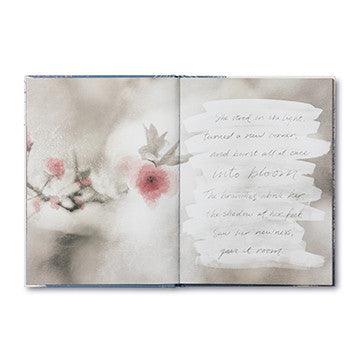 She stood in the light,
turned a new corner,
and burst all at once
into bloom
The branches about her
the shadow at her feet
saw her newness,
gave it room